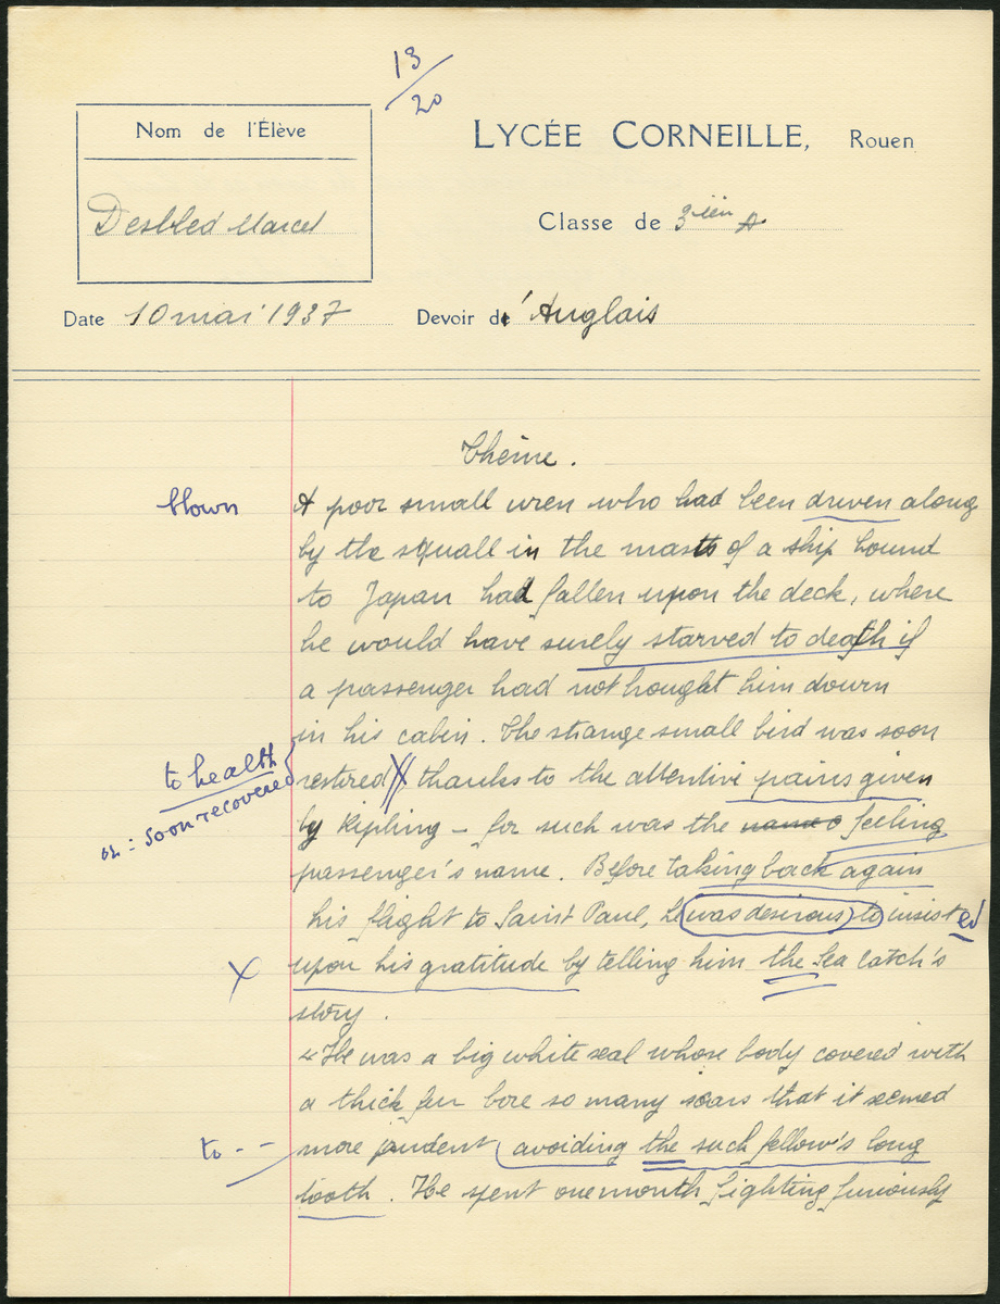 13/20
Nom de l'Élève
LYCÉE CORNEILLE, Rouen
Desbled Marcel
Classe de 3ième A
Date 10 mai 1937 Devoir d'Anglais
Thème.
blown
A poor small wren who had been driven along
by the squall in the masts of a ship bound
to Japan had fallen upon the deck, where
he would have surely starved to death if
a passenger had not bought him down
in his cabin. The strange small bird was soon
to health
restored thanks to the attentive pains given
or: soon recovered
by Kipling - for such was the name feeling
passenger's name. Before taking back again
his flight to Saint Paul, he was desirous to insisted
X upon his gratitude by telling him the Sea Catch's
story.
"He was a big white seal whose body covered with
a thick fur bore so many scars that it seemed
to -- more prudent avoiding the such fellow's long
tooth. He spent one month fighting furiously